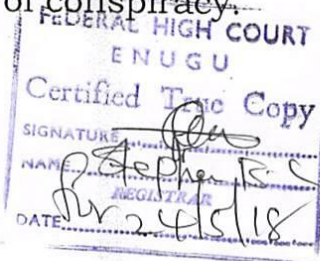 of conspiracy.
FEDERAL HIGH COURT
ENUGU
Certified True Copy
SIGNATURE
NAME Stephen
REGISTRAR
DATE 24/5/18